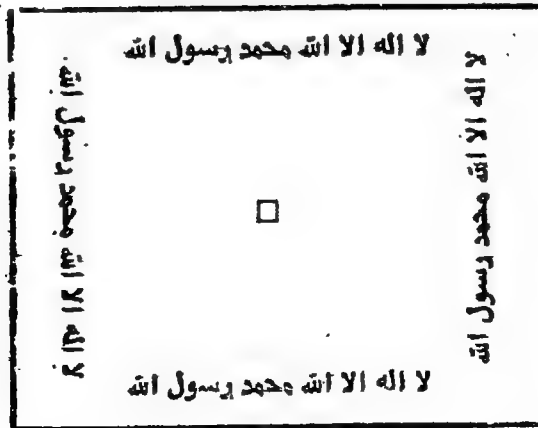 لا اله الا الله محمد رسول الله
لا اله الا الله محمد رسول الله
لا اله الا الله محمد رسول الله
لا اله الا الله محمد رسول الله